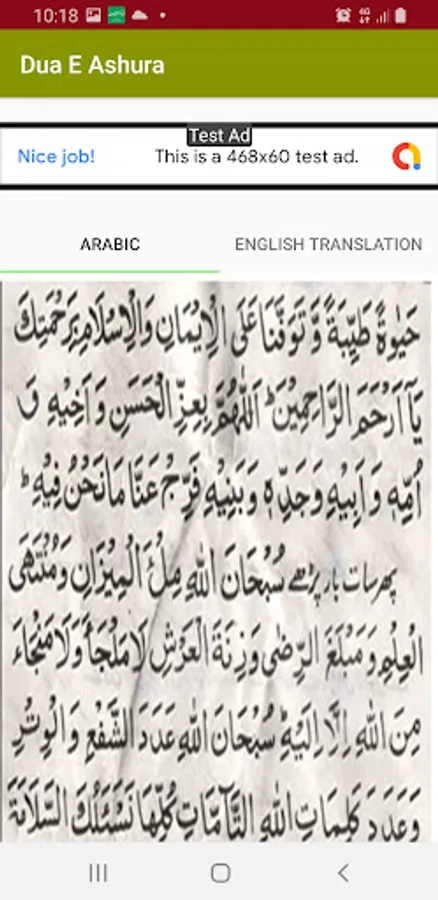 10:18
4G
Dua E Ashura
Test Ad
Nice job!
This is a 468x60 test ad.
ARABIC
ENGLISH TRANSLATION
حَيٰوةً طَيِّبَةً وَّ تَوَفَّنَا عَلَى الْاِيْمَانِ وَالْاِسْلَامِ بِرَحْمَتِكَ
يَآ اَرْحَمَ الرَّاحِمِيْنَ ؕ اَللّٰهُمَّ بِعِزِّ الْحَسَنِ وَ اَخِيْهِ وَ
اُمِّهٖ وَ اَبِيْهِ وَ جَدِّهٖ وَ بَنِيْهِ فَرِّجْ عَنَّا مَا نَحْنُ فِيْهِ ؕ
پھر سات بار پڑھے سُبْحَانَ اللهِ مِلْئَ الْمِيْزَانِ وَ مُنْتَهَى
الْعِلْمِ وَ مَبْلَغَ الرِّضٰى وَ زِنَةَ الْعَرْشِ لَا مَلْجَأَ وَلَا مَنْجَاءَ
مِنَ اللهِ اِلَّا اِلَيْهِ ؕ سُبْحَانَ اللهِ عَدَدَ الشَّفْعِ وَ الْوِتْرِ
وَ عَدَدَ كَلِمَاتِ اللهِ التَّآمَّاتِ كُلِّهَا نَسْئَلُكَ السَّلَامَةَ